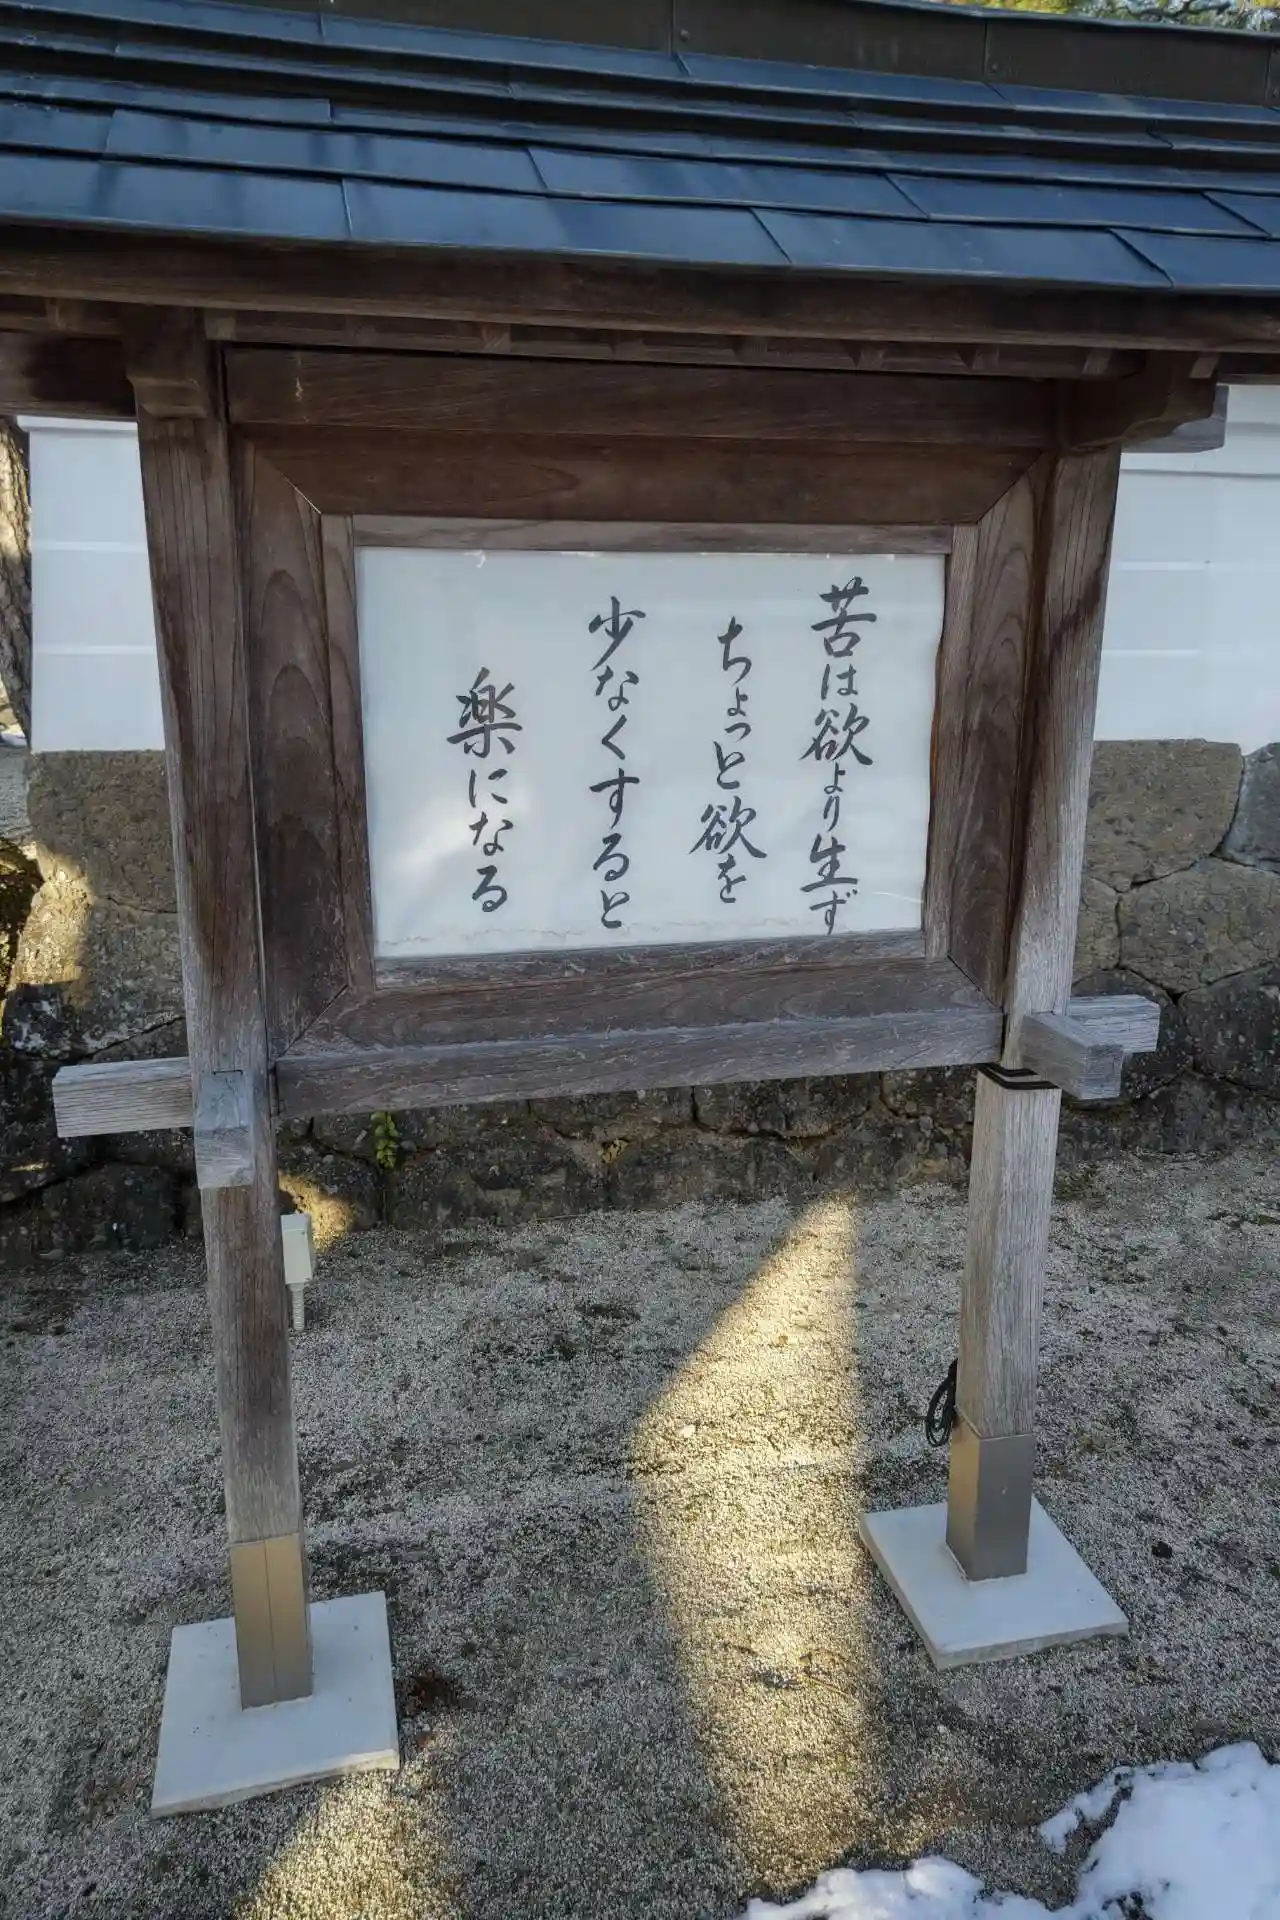 苦は欲より生ず
ちょっと欲を
少なくすると
楽になる